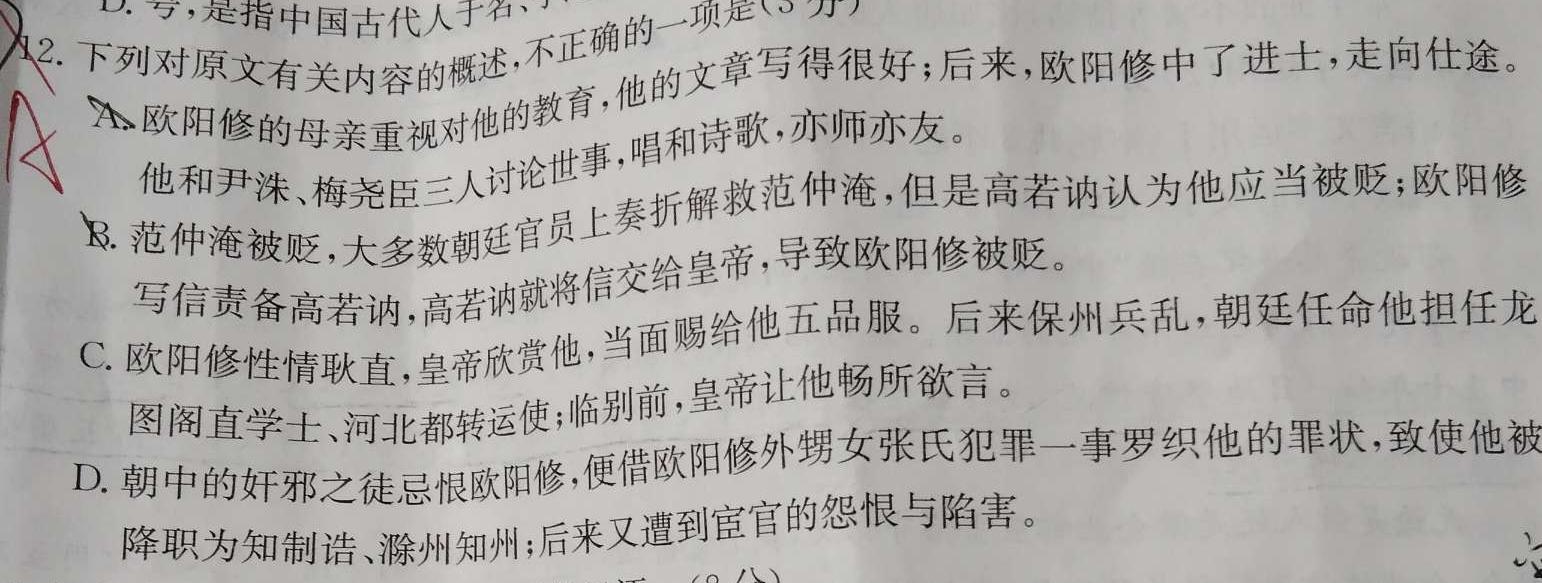 D. 号,是指中国古代人于名、
12. 下列对原文有关内容的概述,不正确的一项是(3分)
A. 欧阳修的母亲重视对他的教育,他的文章写得很好;后来,欧阳修中了进士,走向仕途。
他和尹洙、梅尧臣三人讨论世事,唱和诗歌,亦师亦友。
B. 范仲淹被贬,大多数朝廷官员上奏折解救范仲淹,但是高若讷认为他应当被贬;欧阳修
写信责备高若讷,高若讷就将信交给皇帝,导致欧阳修被贬。
C. 欧阳修性情耿直,皇帝欣赏他,当面赐给他五品服。后来保州兵乱,朝廷任命他担任龙
图阁直学士、河北都转运使;临别前,皇帝让他畅所欲言。
D. 朝中的奸邪之徒忌恨欧阳修,便借欧阳修外甥女张氏犯罪一事罗织他的罪状,致使他被
降职为知制诰、滁州知州;后来又遭到宦官的怨恨与陷害。
A